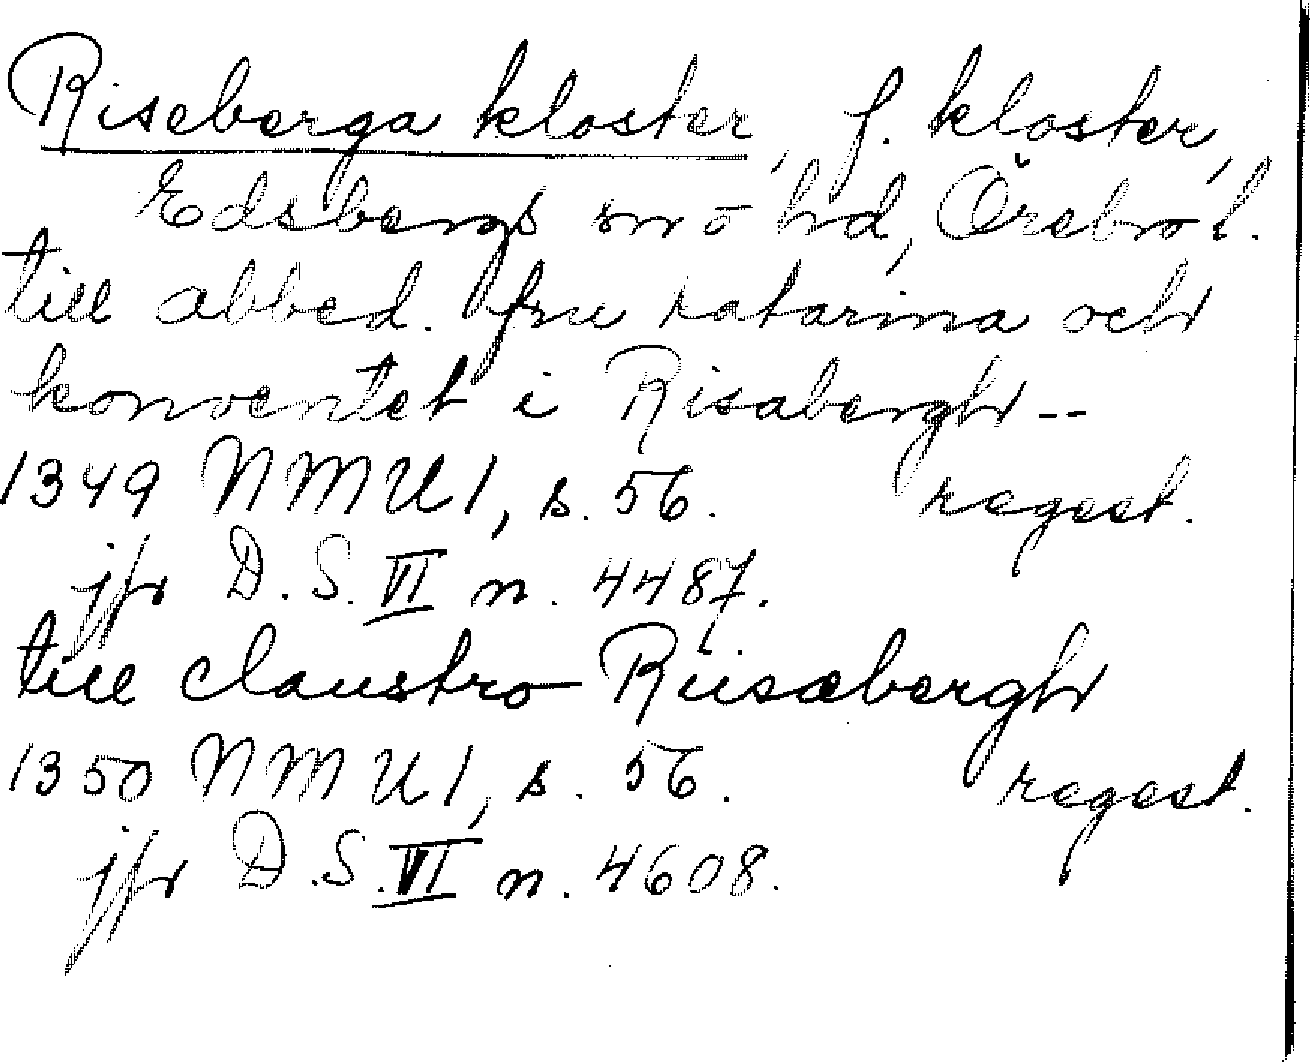 Riseberga kloster, f. kloster,
Edsbergs sn o hd, Örebro l.
till abbed. fru katarina och
konventet i Risabergh --
1349 NMU1, s. 56. regest.
jfr D.S. VI n. 4487.
till claustro Riisæbergh
1350 NMU1, s. 56. regest.
jfr D.S. VI n. 4608.